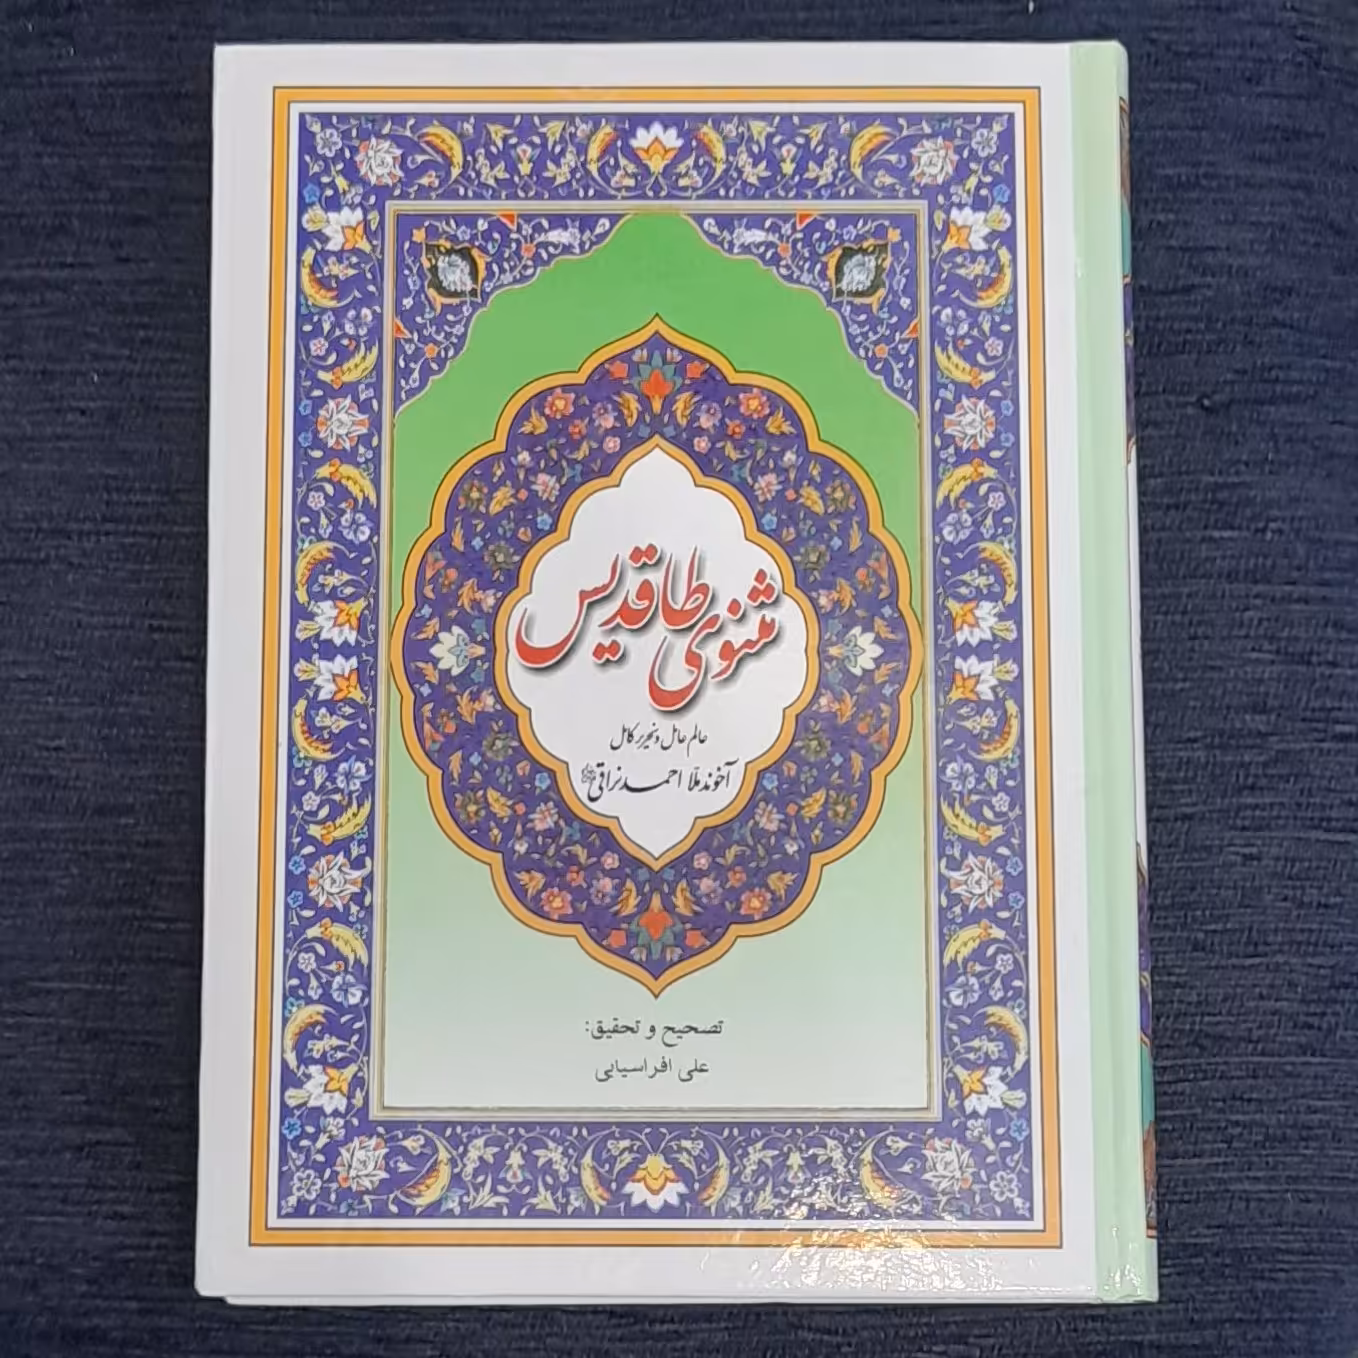 مثنوی طاقدیس
عالم عامل و نحریر کامل
آخوند ملّا احمد نراقی
تصحیح و تحقیق:
علی افراسیابی